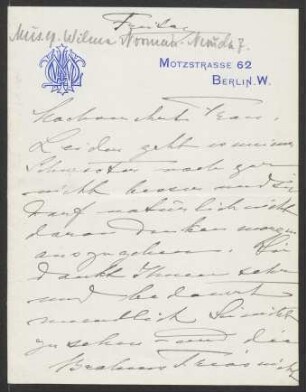 Freitag
Mus. g. Wilma Norman-Neruda 7.
MOTZSTRASSE 62
BERLIN. W.
Hochverehrte Frau,
Leider geht es meiner
Schwester noch gar
nicht besser und sie
darf natürlich nicht
daran denken morgen
auszugehen. Sie
dankt Ihnen sehr
und bedauert
unendlich Sie nicht
zu sehen und die
Brahms Trios nicht